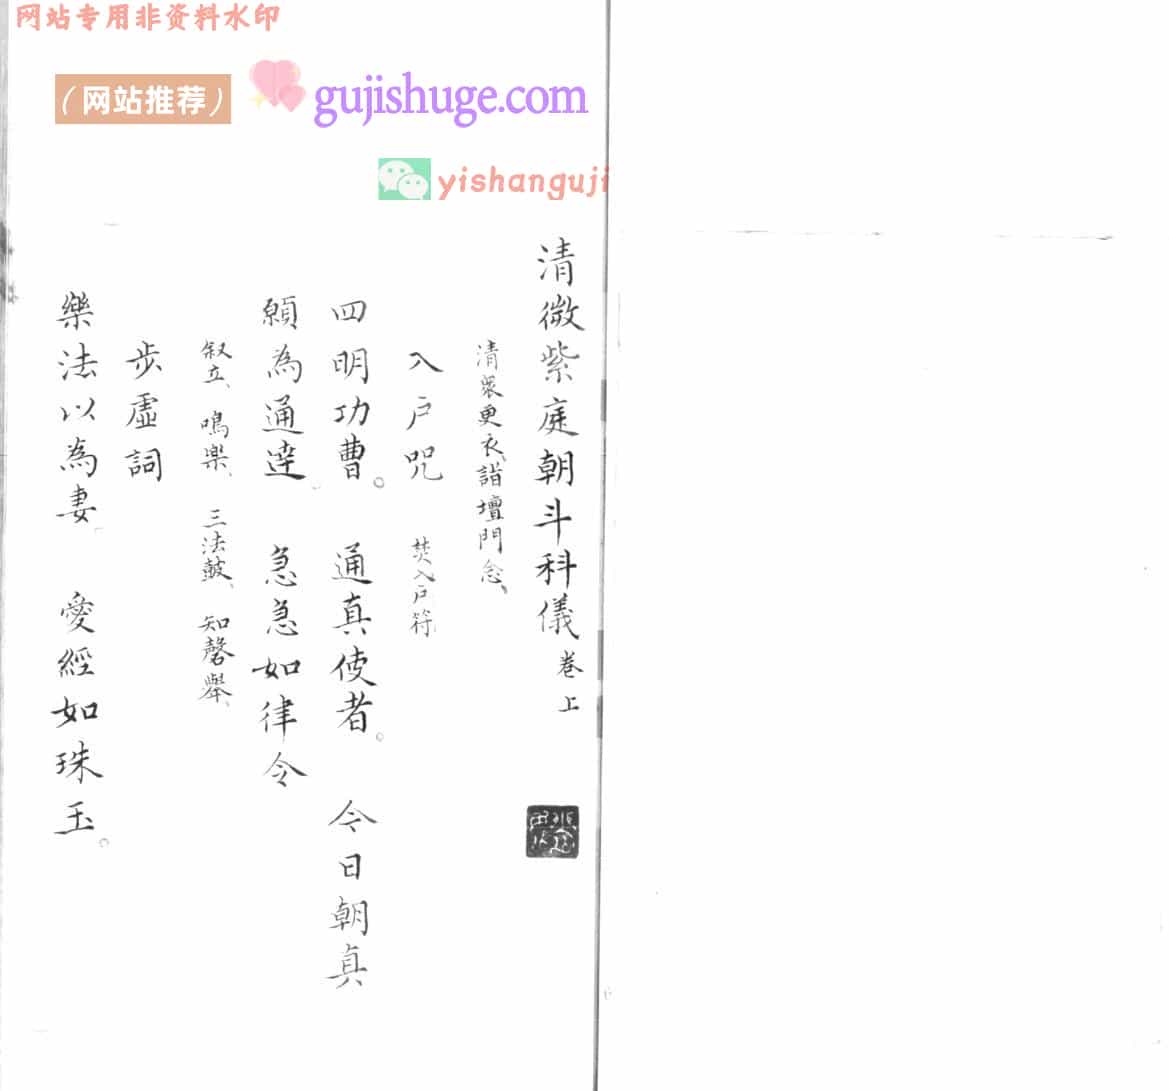 网站专用非资料水印
（网站推荐）
gujishuge.com
yishanguji
清微紫庭朝斗科儀 卷上
清衆更衣、詣壇門念、
入戶咒 焚入戶符
四明功曹。 通真使者。 今日朝真
願為通達 急急如律令
叙立、鳴楽、三法鼓、知磬舉、
步虛詞
樂法以為妻 愛經如珠玉。